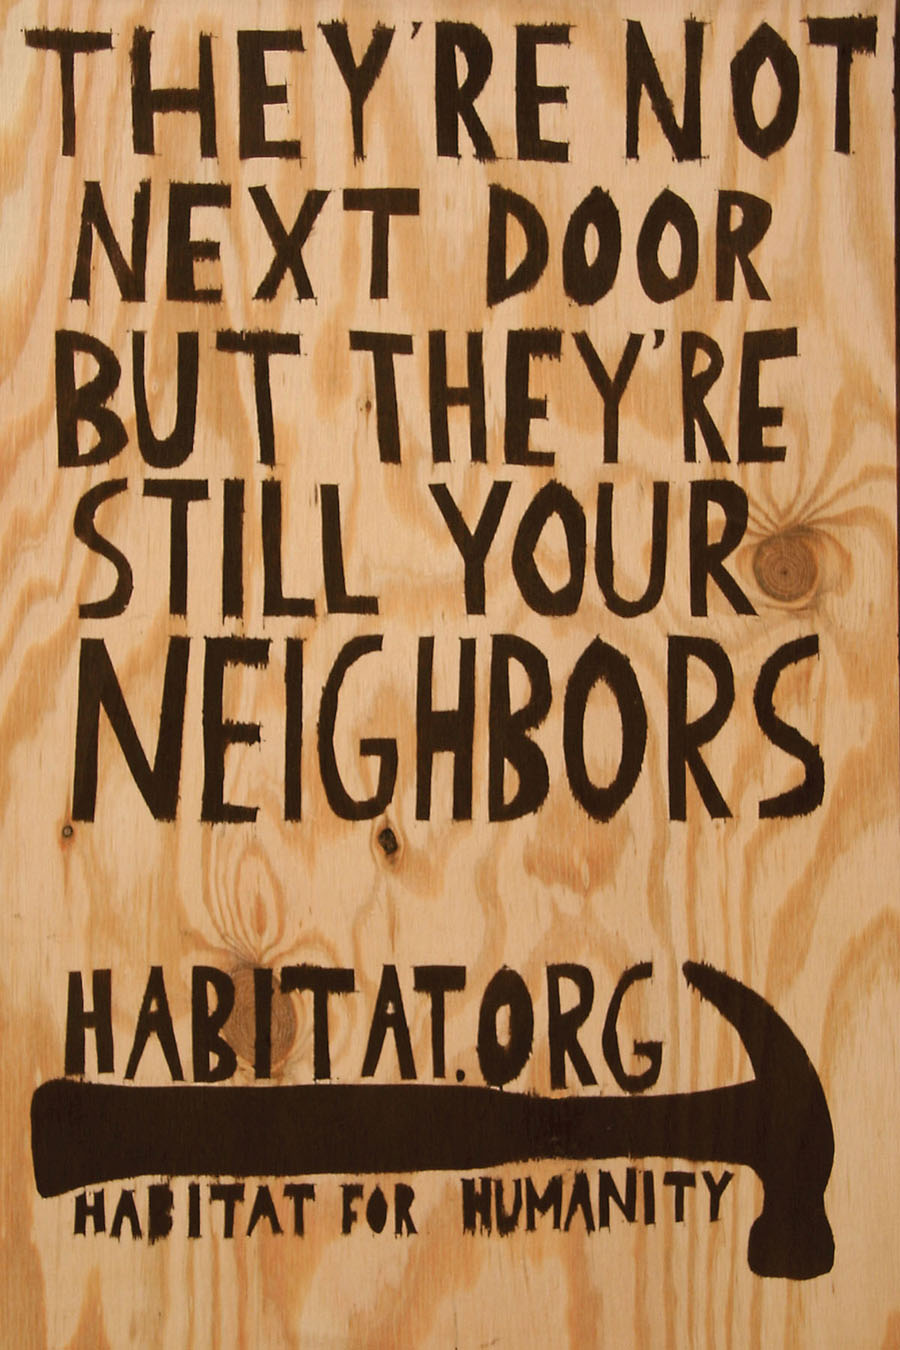 THEY'RE NOT
NEXT DOOR
BUT THEY'RE
STILL YOUR
NEIGHBORS
HABITAT.ORG
HABITAT FOR HUMANITY